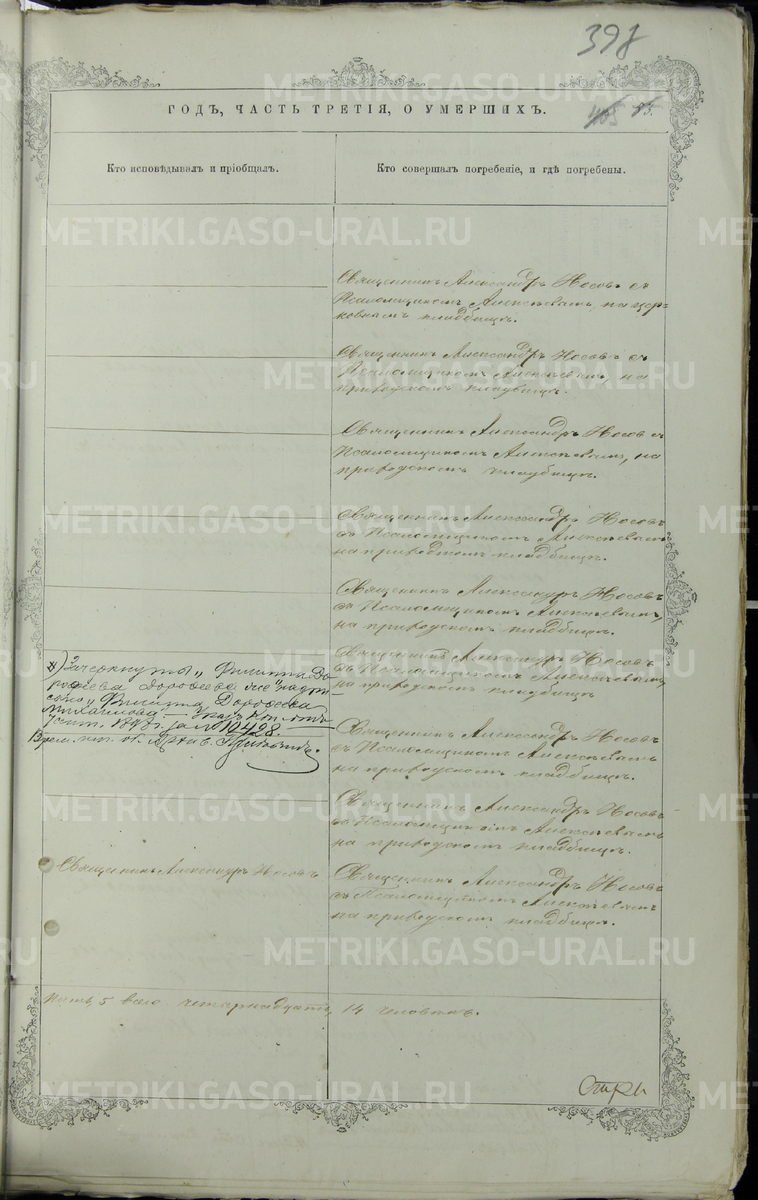 398
ГОДЪ, ЧАСТЬ ТРЕТІЯ, О УМЕРШИХЪ.
465 85.
Кто исповѣдывалъ и пріобщалъ.
Кто совершалъ погребеніе, и гдѣ погребены.
Священникъ Александръ Носовъ съ
Псаломщикомъ Алексѣевымъ, на цер-
ковномъ кладбищѣ.
Священникъ Александръ Носовъ съ
Псаломщикомъ Алексѣевымъ, на
приходскомъ кладбищѣ.
Священникъ Александръ Носовъ съ
Псаломщикомъ Алексѣевымъ, на
приходскомъ кладбищѣ.
Священникъ Александръ Носовъ
съ Псаломщикомъ Алексѣевымъ
на приходскомъ кладбищѣ.
Священникъ Александръ Носовъ
съ Псаломщикомъ Алексѣевымъ,
на приходскомъ кладбищѣ.
х) Зачеркнуты „Филиппъ До-
рофеева Дорофеева
„Филиппа Дорофеева
Михайлова"
за № 12428.
Священникъ Александръ Носовъ
съ Псаломщикомъ Алексѣевымъ
на приходскомъ кладбищѣ
Священникъ Александръ Носовъ
съ Псаломщикомъ Алексѣевымъ
на приходскомъ кладбищѣ.
Священникъ Александръ Носовъ
съ Псаломщикомъ Алексѣевымъ
на приходскомъ кладбищѣ.
Священникъ Александръ Носовъ
Священникъ Александръ Носовъ
съ Псаломщикомъ Алексѣевымъ
на приходскомъ кладбищѣ.
пять, 5 всего четырнадцать, 14 человѣкъ.
METRIKI.GASO-URAL.RU